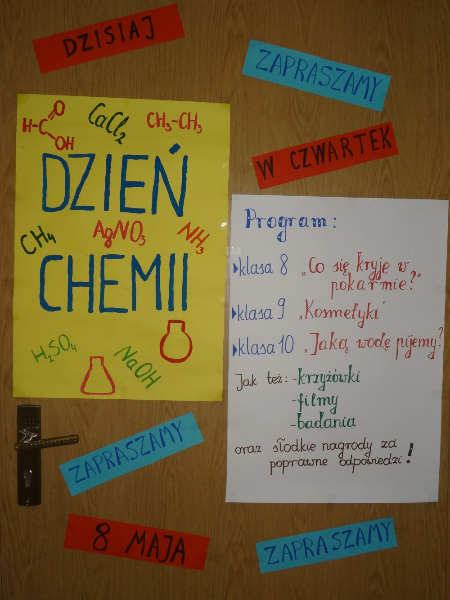 DZISIAJ
ZAPRASZAMY
W CZWARTEK
H-C
O
OH
CaCl₂
CH₃-CH₃
DZIEŃ
CH₄
AgNO₃
NH₃
CHEMII
H₂SO₄
NaOH
Program:
klasa 8 „Co się kryje w
pokarmie?"
klasa 9 „Kosmetyki"
klasa 10 „Jaką wodę pijemy?
Jak też: -krzyżówki
-filmy
-badania
oraz słodkie nagrody za
poprawne odpowiedzi!
ZAPRASZAMY
8 MAJA
ZAPRASZAMY